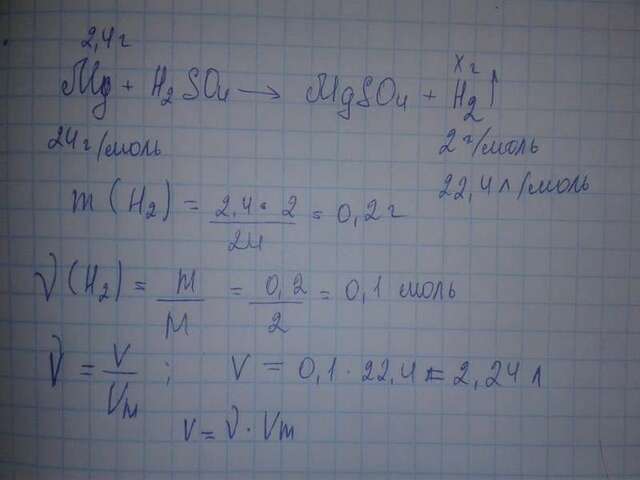 2,4 г х г
Mg + H₂SO₄ → MgSO₄ + H₂↑
24 г/моль 2 г/моль
22,4 л/моль
m (H₂) = 2,4 · 2 / 24 = 0,2 г
ν (H₂) = m / M = 0,2 / 2 = 0,1 моль
ν = V / Vm ; V = 0,1 · 22,4 = 2,24 л
V = ν · Vm